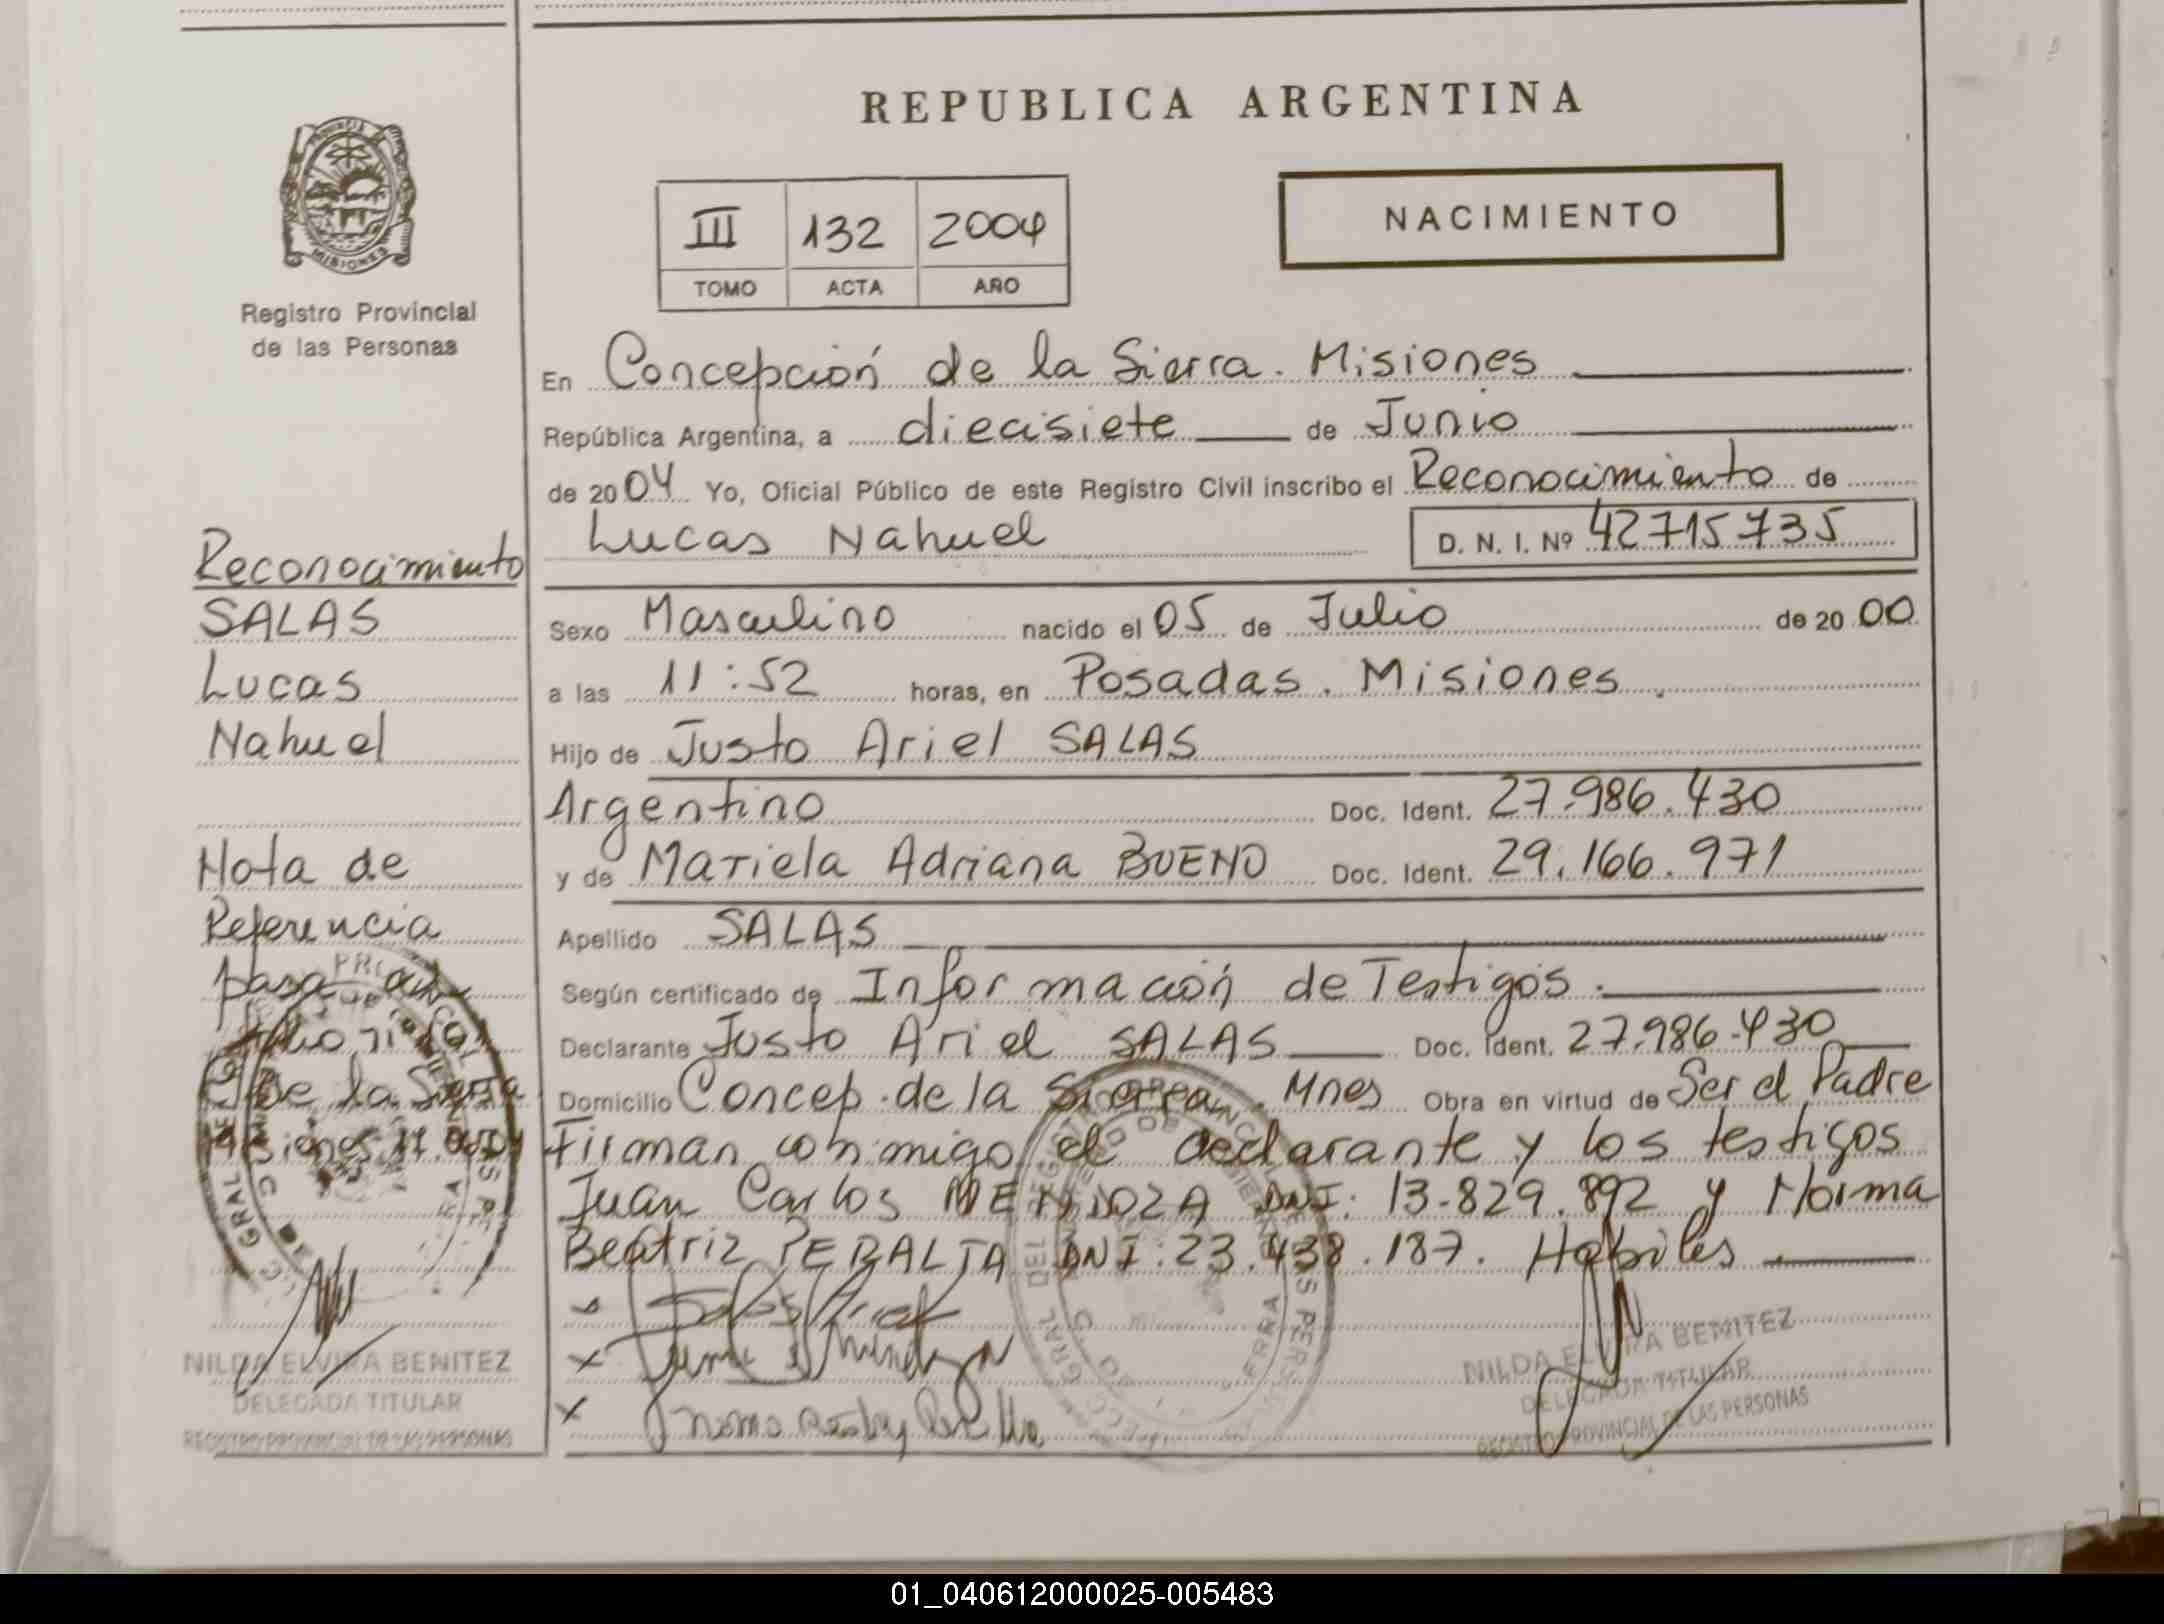 REPUBLICA ARGENTINA
NACIMIENTO
III 132 2004
TOMO ACTA AÑO
Registro Provincial
de las Personas
En Concepción de la Sierra. Misiones
República Argentina, a diecisiete de Junio
de 2004 Yo, Oficial Público de este Registro Civil inscribo el Reconocimiento de
Lucas Nahuel D. N. I. Nº 42715735
Sexo Masculino nacido el 05 de Julio de 2000
a las 11:52 horas, en Posadas. Misiones.
Hijo de Justo Ariel SALAS
Argentino Doc. Ident. 27.986.430
y de Mariela Adriana BUENO Doc. Ident. 29.166.971
Apellido SALAS
Según certificado de Información de Testigos.
Declarante Justo Ariel SALAS Doc. Ident. 27.986.430
Domicilio Concep. de la Sierra. Mnes Obra en virtud de Ser el Padre
Firman conmigo el declarante y los testigos
Juan Carlos MENDOZA DNI: 13.829.892 y Norma
Beatriz PERALTA DNI: 23.438.187. Habiles.
NILDA ELVIRA BENITEZ
DELEGADA TITULAR
REGISTRO PROVINCIAL DE LAS PERSONAS
Reconocimiento
SALAS
Lucas
Nahuel
Nota de
Referencia
De la Sierra
Misiones
NILDA ELVIRA BENITEZ
DELEGADA TITULAR
REGISTRO PROVINCIAL DE LAS PERSONAS
01_040612000025-005483